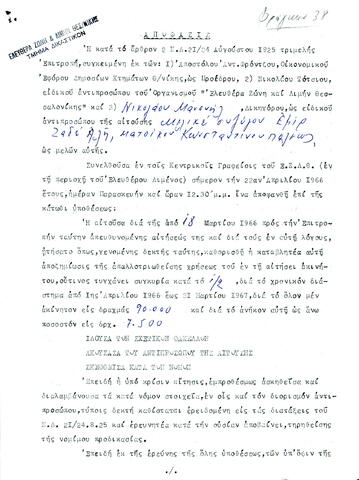 Δράμας 38
ΕΛΕΥΘΕΡΑ ΖΩΝΗ & ΛΙΜΗΝ ΘΕΣ/ΝΙΚΗΣ
ΤΜΗΜΑ ΔΙΚΑΣΤΙΚΟΝ
ΑΠΟΦΑΣΙΣ
Ἡ κατά τό ἄρθρον 2 Ν.Δ.21/24 Αὐγούστου 1925 τριμελής
Ἐπιτροπή,συγκειμένη ἐκ τῶν: 1)Ἀποστόλου Ἀντ.Φρόντσου,Οἰκονομικοῦ
Ἐφόρου Δημοσίων Κτημάτων Θ/νίκης,ὡς Προέδρου, 2) Νικολάου Τότσιου,
εἰδικοῦ ἀντιπροσώπου τοῦ Ὀργανισμοῦ "Ἐλευθέρα Ζώνη καί Λιμήν Θεσ-
σαλονίκης" καί 3) Νικολάου Μάνου ,Δικηγόρου,ὡς εἰδικοῦ
ἀντιπροσώπου τῆς αἰτούσης συζύγου Ἐμίρ
Ζαδέ κατοίκου Κωνσταντινουπόλεως,
ὡς μελῶν αὐτῆς.
Συνελθοῦσα ἐν τοῖς Κεντρικοῖς Γραφείοις τοῦ Ε.Ζ.Λ.Θ. (ἐν
τῇ περιοχῇ τοῦ Ἐλευθέρου Λιμένος) σήμερον τήν 22αν Ἀπριλίου 1966
ἔτους,ἡμέραν Παρασκευήν καί ὥραν 12.30΄μ.μ. ἵνα ἀποφανθῇ ἐπί τῆς
κάτωθι ὑποθέσεως:
Ἡ αἰτοῦσα διά τῆς ἀπό 18 Μαρτίου 1966 πρός τήν Ἐπιτρο-
πήν ταύτην ἀπευθυνομένης αἰτήσεώς της καί διά τούς ἐν αὐτῇ λόγους,
ᾐτήσατο ὅπως,γενομένης δεκτῆς ταύτης,καθορισθῇ ἡ καταβλητέα αὐτῇ
ἀποζημίωσις τῆς ἀπαλλοτριωθείσης χρήσεως τοῦ ἐν τῇ αἰτήσει ἀκινή-
του,οὗτινος τυγχάνει συγκυρία κατά τό 1/2 ,διά τό χρονικόν διά-
στημα ἀπό 1ης Ἀπριλίου 1966 ἕως 31 Μαρτίου 1967,διά τό ὅλον μέν
ἀκίνητον εἰς δραχμάς 90.000 καί διά τό ἀνῆκον αὐτῇ ὡς ἄνω
ποσοστόν εἰς δρχ. 7.500
ΙΔΟΥΣΑ ΤΩΝ ΣΧΕΤΙΚΩΝ ΦΑΚΕΛΛΟΝ
ΑΚΟΥΣΑΣΑ ΤΟΥ ΑΝΤΙΠΡΟΣΩΠΟΥ ΤΗΣ ΑΙΤΟΥΣΗΣ
ΣΚΕΦΘΕΙΣΑ ΚΑΤΑ ΤΟΝ ΝΟΜΟΝ
Ἐπειδή ἡ ὑπό κρίσιν αἴτησις,ἐμπροθέσμως ἀσκηθεῖσα καί
διαλαμβάνουσα τά κατά νόμον στοιχεῖα,ἐν οἷς καί τόν διορισμόν ἀντι-
προσώπου,τύποις δεκτή καθίσταται ἐρειδομένη εἰς τάς διατάξεις τοῦ
Ν.Δ. 21/24.8.25 καί ἐρευνητέα κατά τήν οὐσίαν ἀποβαίνει,τηρηθείσης
τῆς νομίμου προδικασίας.
Ἐπειδή ἐκ τῆς ἐρεύνης τῆς ὅλης ὑποθέσεως,τῶν ὑπ'ὄψιν τῆς
./.